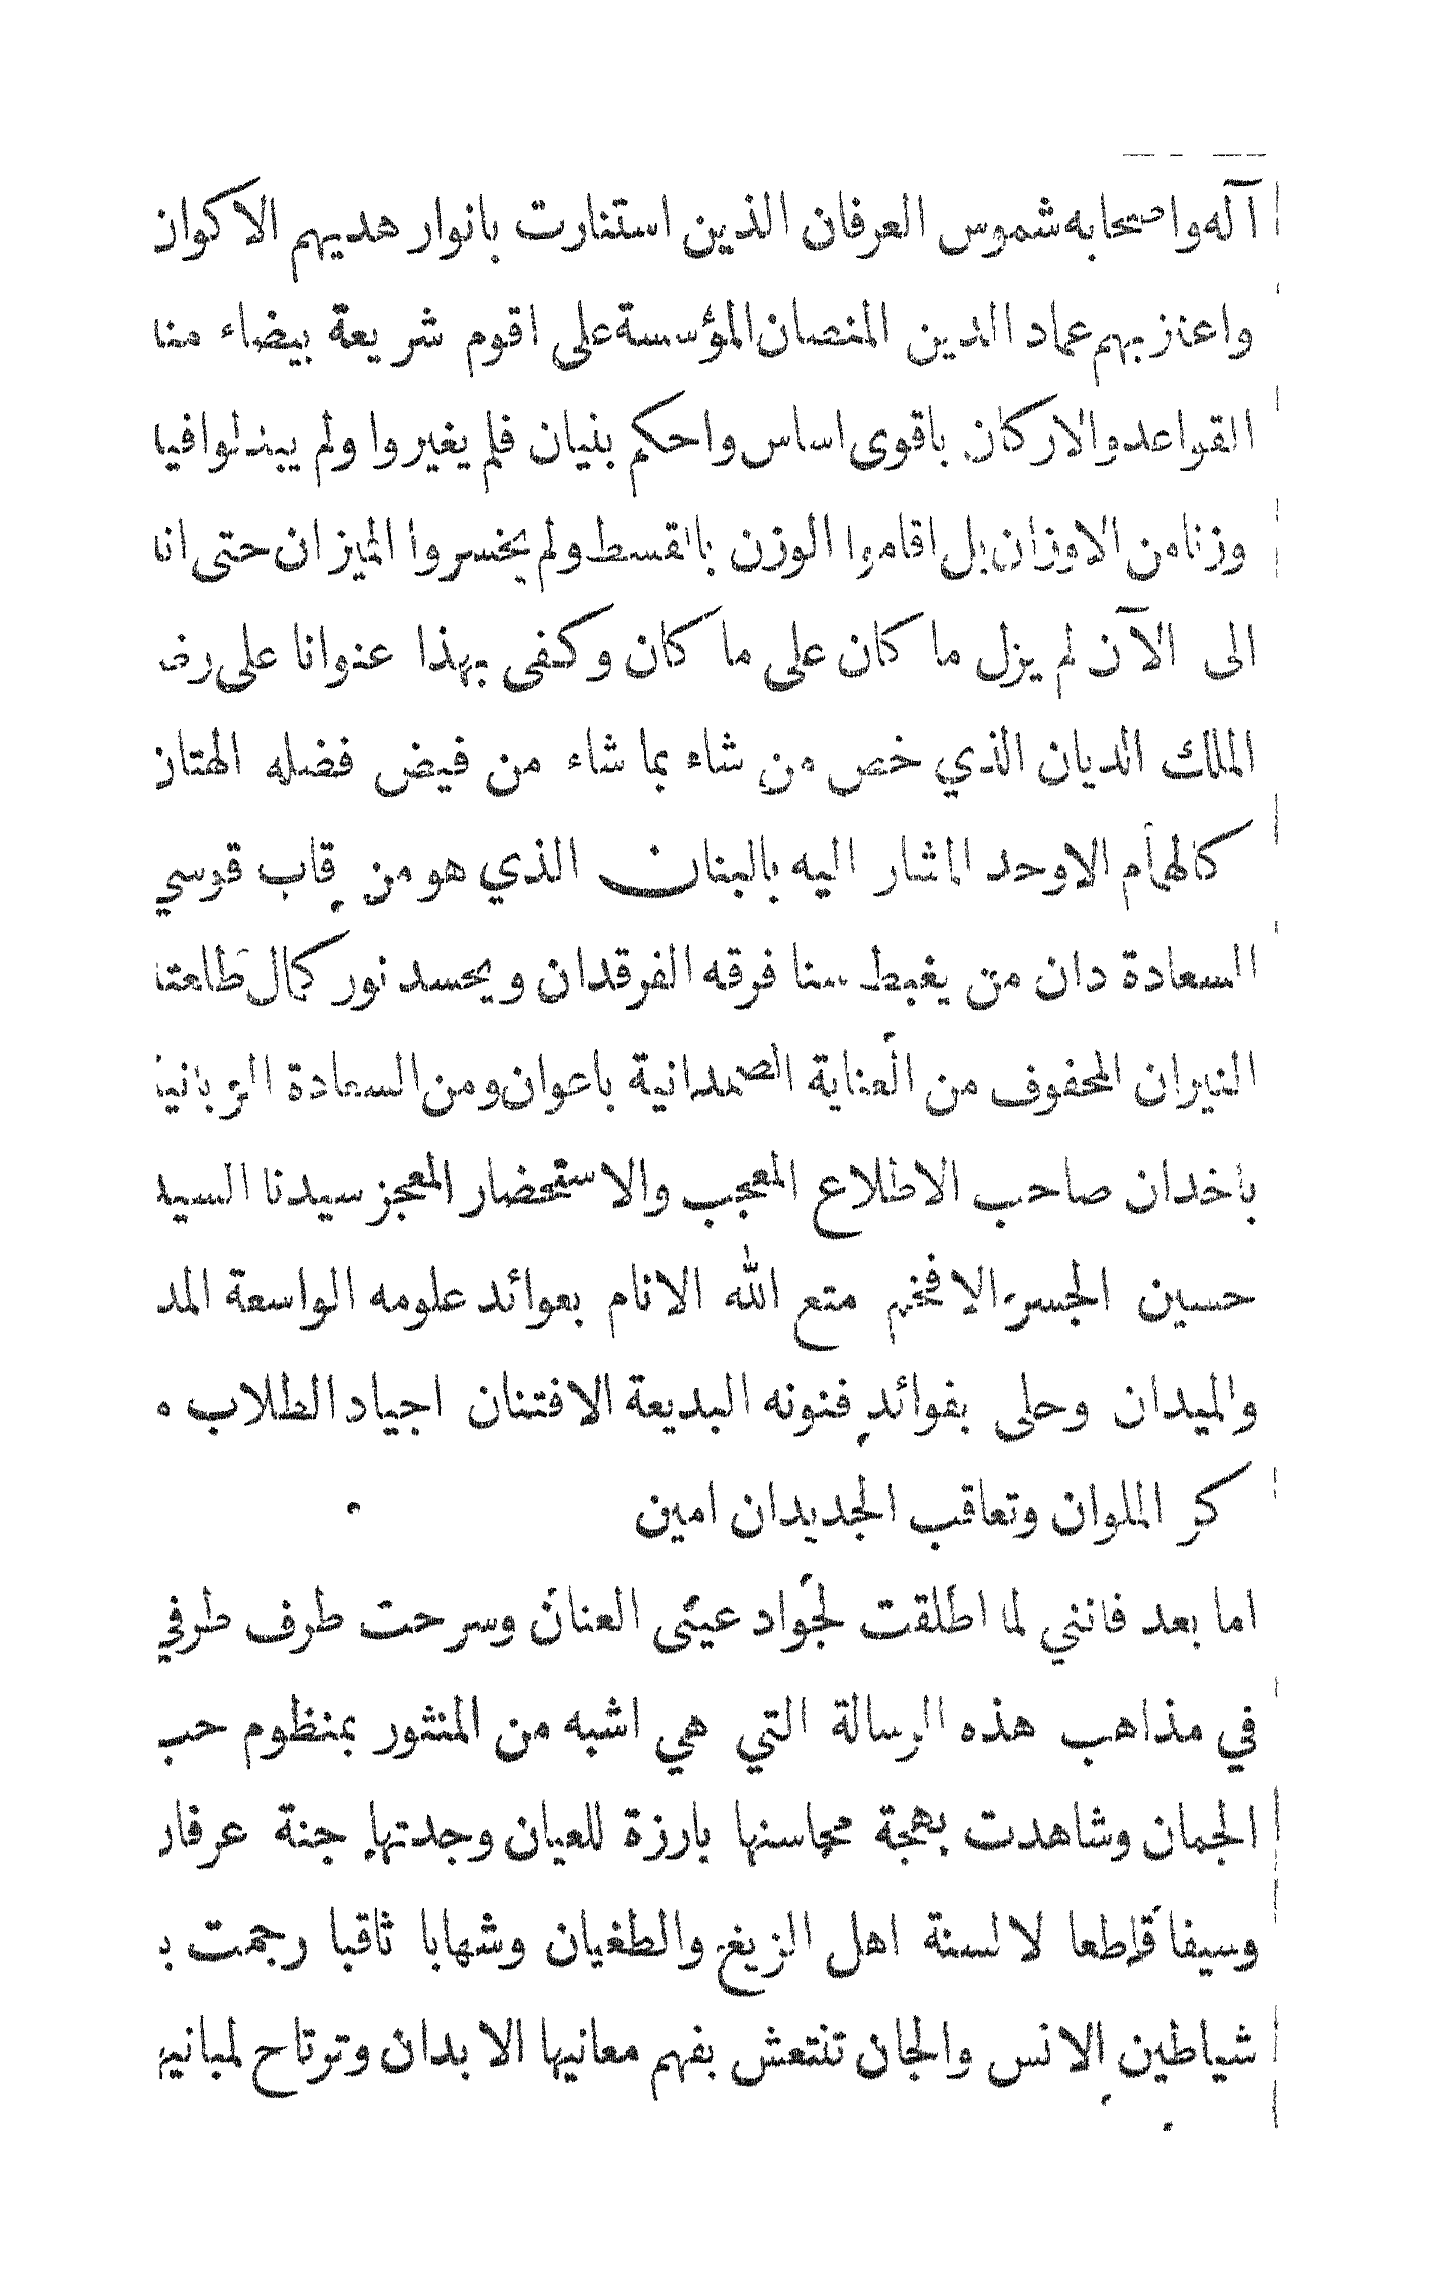 آله واصحابه شموس العرفان الذين استنارت بانوار هديهم الاكوان
واعتز بهم عماد الدين المنصان المؤسسة على اقوم شريعة بيضاء منا
القواعد والاركان باقوى اساس واحكم بنيان فلم يغيروا ولم يبدلوا فيا
وزنا من الاوزان بل اقاموا الوزن بالقسط ولم يخسروا الميزان حتى انا
الى الآن لم يزل ما كان على ما كان وكفى بهذا عنوانا على رض
الملك الديان الذي خص من شاء بما شاء من فيض فضله الهتان
كالهمام الاوحد المشار اليه بالبنان الذي هو من قاب قوسي
السعادة دان من يغبط سنا فرقه الفرقدان ويحسد نور كمال طلعتا
النيران المحفوف من العناية الصمدانية باعوان ومن السعادة الربانية
باخدان صاحب الاطلاع المعجب والاستحضار المعجز سيدنا السيد
حسين الجسر الافخم متع الله الانام بعوائد علومه الواسعة المد
والميدان وحلى بفوائد فنونه البديعة الافتنان اجياد الطلاب م
كر الملوان وتعاقب الجديدان امين
اما بعد فانني لما اطلقت لجواد عيني العنان وسرحت طرف طرفي
في مذاهب هذه الرسالة التي هي اشبه من المنثور بمنظوم حب
الجمان وشاهدت بهجة محاسنها بارزة للعيان وجدتها جنة عرفان
وسيفا قاطعا لالسنة اهل الزيغ والطغيان وشهابا ثاقبا رجمت ب
شياطين الانس والجان تنتعش بفهم معانيها الابدان وترتاح لمبانيه